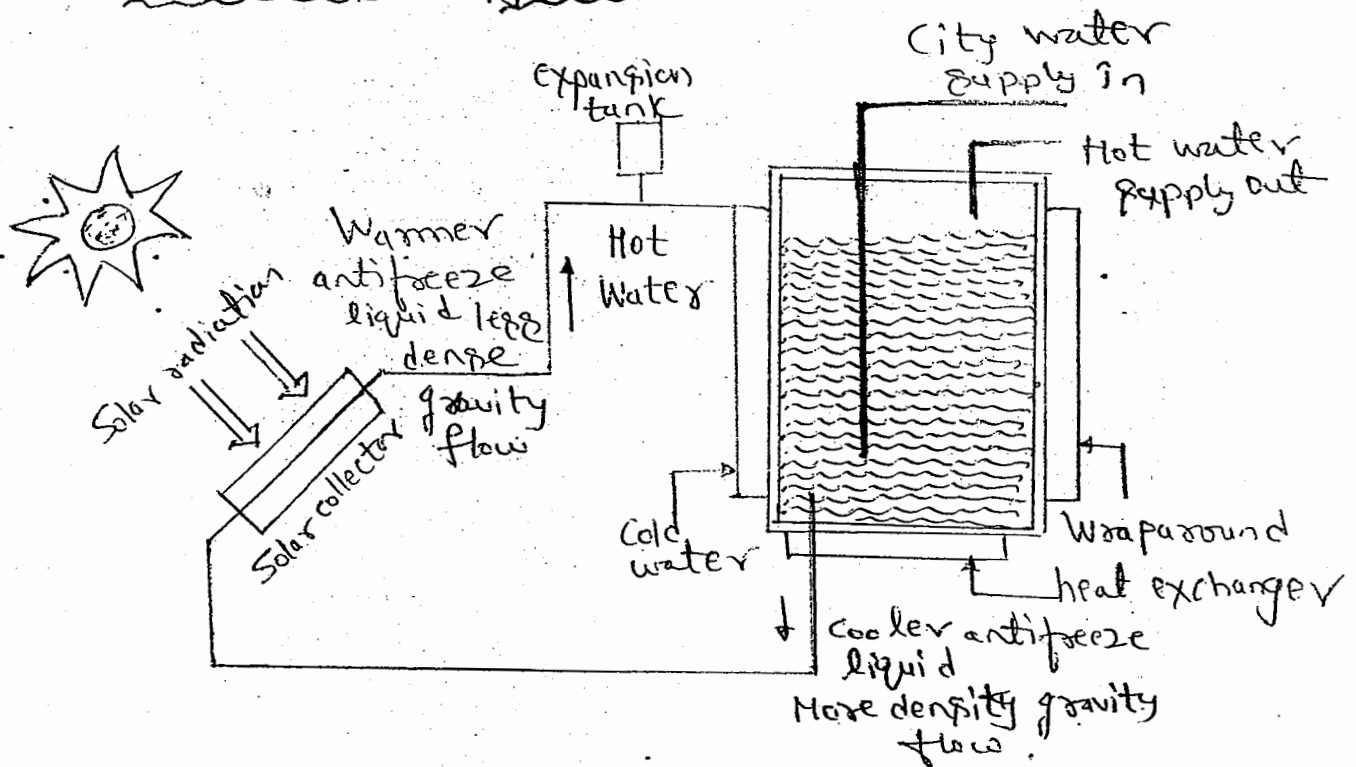 City water
supply In
expansion
tank
Hot water
supply out
Warmer
antifreeze
liquid less
dense
gravity
flow
Hot
Water
Solar radiation
Solar collector
Cold
water
Wraparound
heat exchanger
cooler antifreeze
liquid
More density gravity
flow.